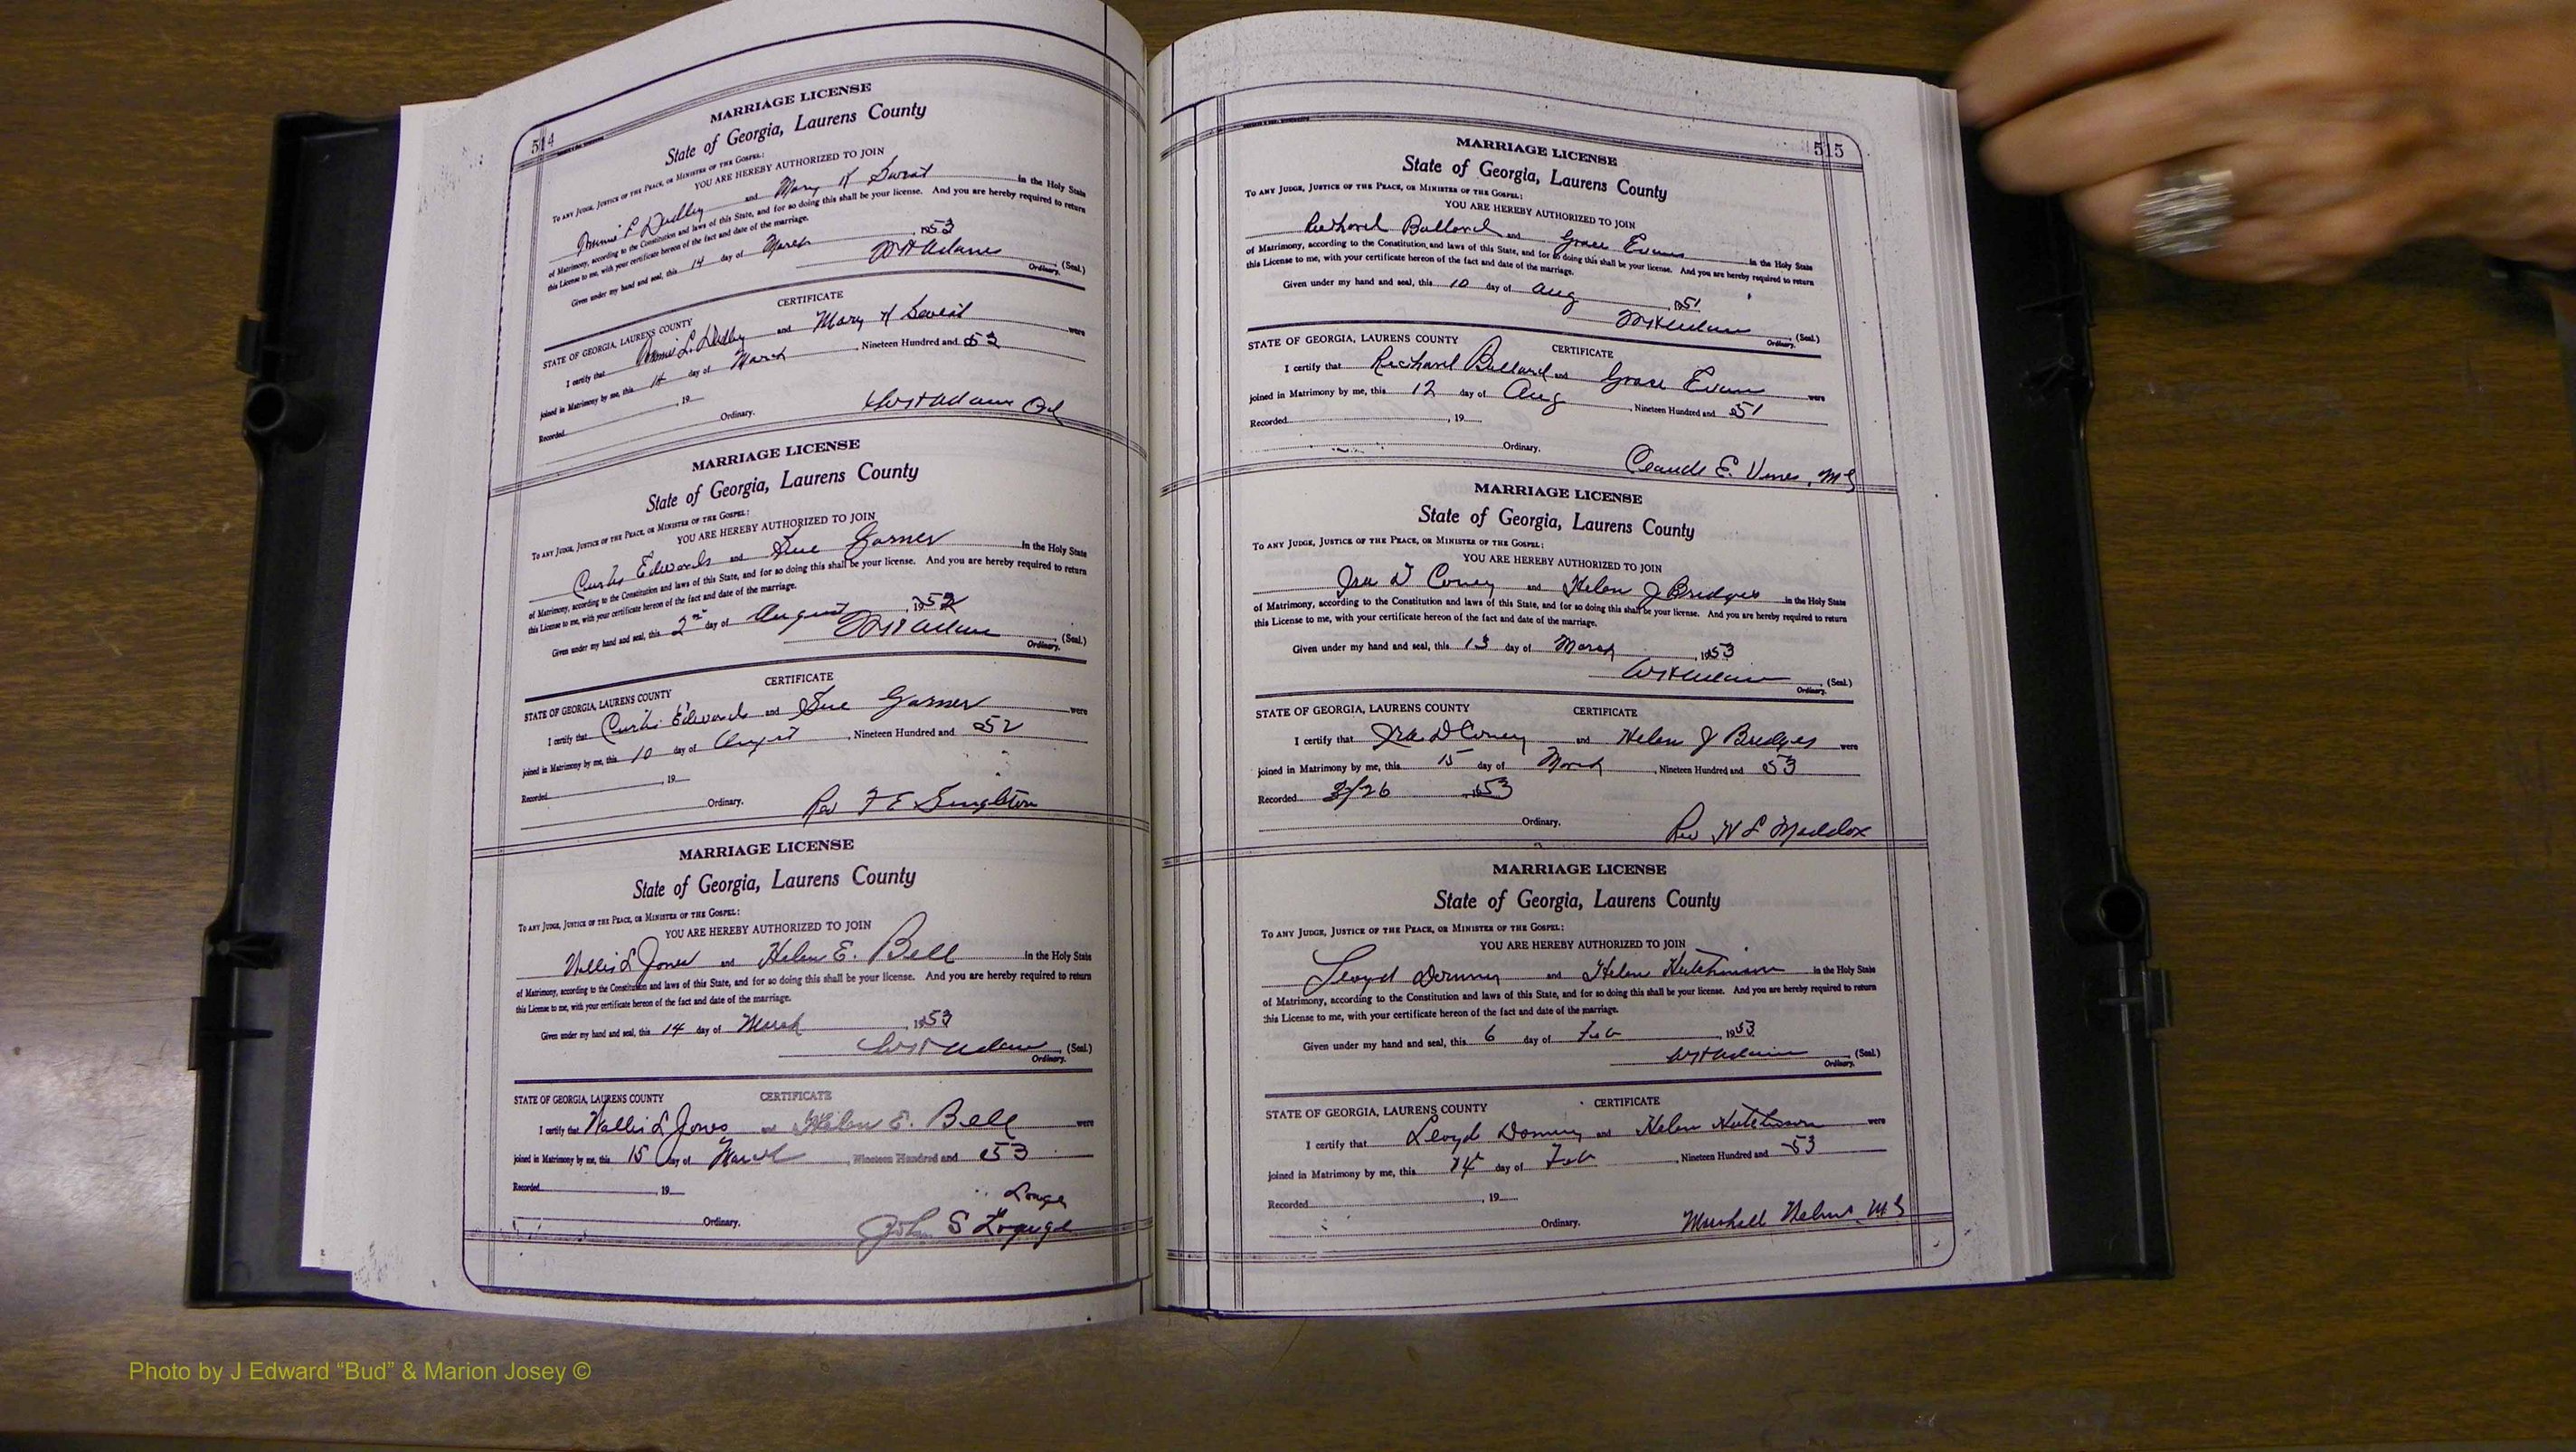 514
MARRIAGE LICENSE
State of Georgia, Laurens County
To any Judge, Justice of the Peace, or Minister of the Gospel:
YOU ARE HEREBY AUTHORIZED TO JOIN
L Dudley and Mary H Sweat in the Holy State
of Matrimony, according to the Constitution and laws of this State, and for so doing this shall be your license. And you are hereby required to return
this License to me, with your certificate hereon of the fact and date of the marriage.
Given under my hand and seal, this 14 day of March, 1953
WH Adams (Seal.)
Ordinary.
CERTIFICATE
STATE OF GEORGIA, LAURENS COUNTY
I certify that L. Dudley and Mary H Sweat were
joined in Matrimony by me, this 14 day of March, Nineteen Hundred and 53
Recorded, 19
Ordinary.
WH Adams Ord
MARRIAGE LICENSE
State of Georgia, Laurens County
To any Judge, Justice of the Peace, or Minister of the Gospel:
YOU ARE HEREBY AUTHORIZED TO JOIN
Curtis Edwards and Sue Garner in the Holy State
of Matrimony, according to the Constitution and laws of this State, and for so doing this shall be your license. And you are hereby required to return
this License to me, with your certificate hereon of the fact and date of the marriage.
Given under my hand and seal, this 2nd day of August, 1952
WH Adams (Seal.)
Ordinary.
CERTIFICATE
STATE OF GEORGIA, LAURENS COUNTY
I certify that Curtis Edwards and Sue Garner were
joined in Matrimony by me, this 10 day of August, Nineteen Hundred and 52
Recorded, 19
Ordinary.
Rev F E Singleton
MARRIAGE LICENSE
State of Georgia, Laurens County
To any Judge, Justice of the Peace, or Minister of the Gospel:
YOU ARE HEREBY AUTHORIZED TO JOIN
Wallis L Jones and Helen E. Bell in the Holy State
of Matrimony, according to the Constitution and laws of this State, and for so doing this shall be your license. And you are hereby required to return
this License to me, with your certificate hereon of the fact and date of the marriage.
Given under my hand and seal, this 14 day of March, 1953
WH Adams (Seal.)
Ordinary.
CERTIFICATE
STATE OF GEORGIA, LAURENS COUNTY
I certify that Wallis L Jones and Helen E. Bell were
joined in Matrimony by me, this 15 day of March, Nineteen Hundred and 53
Recorded, 19
Ordinary.
John S
515
MARRIAGE LICENSE
State of Georgia, Laurens County
To any Judge, Justice of the Peace, or Minister of the Gospel:
YOU ARE HEREBY AUTHORIZED TO JOIN
Richard Bullard and Grace Evans in the Holy State
of Matrimony, according to the Constitution and laws of this State, and for so doing this shall be your license. And you are hereby required to return
this License to me, with your certificate hereon of the fact and date of the marriage.
Given under my hand and seal, this 10 day of Aug, 1951
WH Adams (Seal.)
Ordinary.
STATE OF GEORGIA, LAURENS COUNTY CERTIFICATE
I certify that Richard Bullard and Grace Evans were
joined in Matrimony by me, this 12 day of Aug, Nineteen Hundred and 51
Recorded, 19
Ordinary.
Claude E. Vines, MG
MARRIAGE LICENSE
State of Georgia, Laurens County
To any Judge, Justice of the Peace, or Minister of the Gospel:
YOU ARE HEREBY AUTHORIZED TO JOIN
Ira D Coney and Helen J Bridges in the Holy State
of Matrimony, according to the Constitution and laws of this State, and for so doing this shall be your license. And you are hereby required to return
this License to me, with your certificate hereon of the fact and date of the marriage.
Given under my hand and seal, this 13 day of March, 1953
WH Adams (Seal.)
Ordinary.
STATE OF GEORGIA, LAURENS COUNTY CERTIFICATE
I certify that Ira D Coney and Helen J Bridges were
joined in Matrimony by me, this 15 day of March, Nineteen Hundred and 53
Recorded 3/26, 1953
Ordinary.
Rev H L Maddox
MARRIAGE LICENSE
State of Georgia, Laurens County
To any Judge, Justice of the Peace, or Minister of the Gospel:
YOU ARE HEREBY AUTHORIZED TO JOIN
Lloyd Dominy and Helen Hutchinson in the Holy State
of Matrimony, according to the Constitution and laws of this State, and for so doing this shall be your license. And you are hereby required to return
this License to me, with your certificate hereon of the fact and date of the marriage.
Given under my hand and seal, this 6 day of Feb, 1953
WH Adams (Seal.)
Ordinary.
CERTIFICATE
STATE OF GEORGIA, LAURENS COUNTY
I certify that Lloyd Dominy and Helen Hutchinson were
joined in Matrimony by me, this 14 day of Feb, Nineteen Hundred and 53
Recorded, 19
Ordinary.
Nelms, MG
Photo by J Edward “Bud” & Marion Josey ©